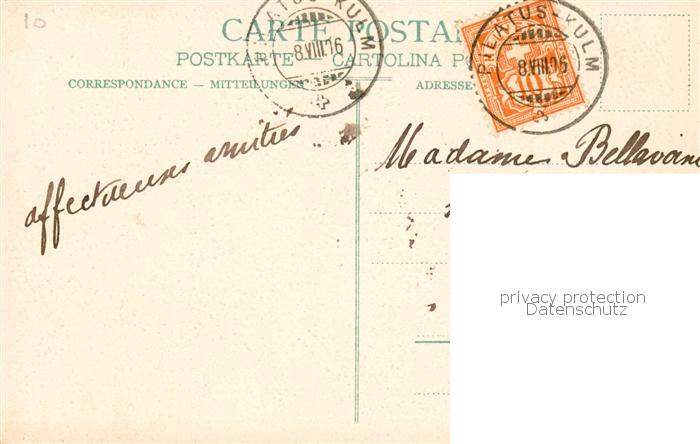 10
CARTE POSTA
POSTKARTE CARTOLINA PO
CORRESPONDANCE — MITTEILUNGEN
ADRESSE
PILATUS-KULM
8.VIII.
PILATUS-KULM
8.VIII.
10
affectueuses amitiés
Madame Bellavoine
privacy protection
Datenschutz